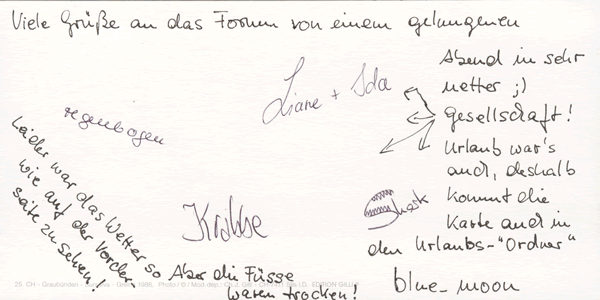 Viele Grüße an das Forum von einem gelungenen
Abend in sehr
netter ;)
Gesellschaft!
Urlaub war's
auch, deshalb
kommt die
Karte auch in
den Urlaubs-"Ordner"
blue_moon
Liane + Ida
regenbogen
Krabbe
Shark
Leider war das Wetter so
wie auf der Vorder-
seite zu sehen!
Aber die Füsse
waren trocken!
25. CH - Graubünden